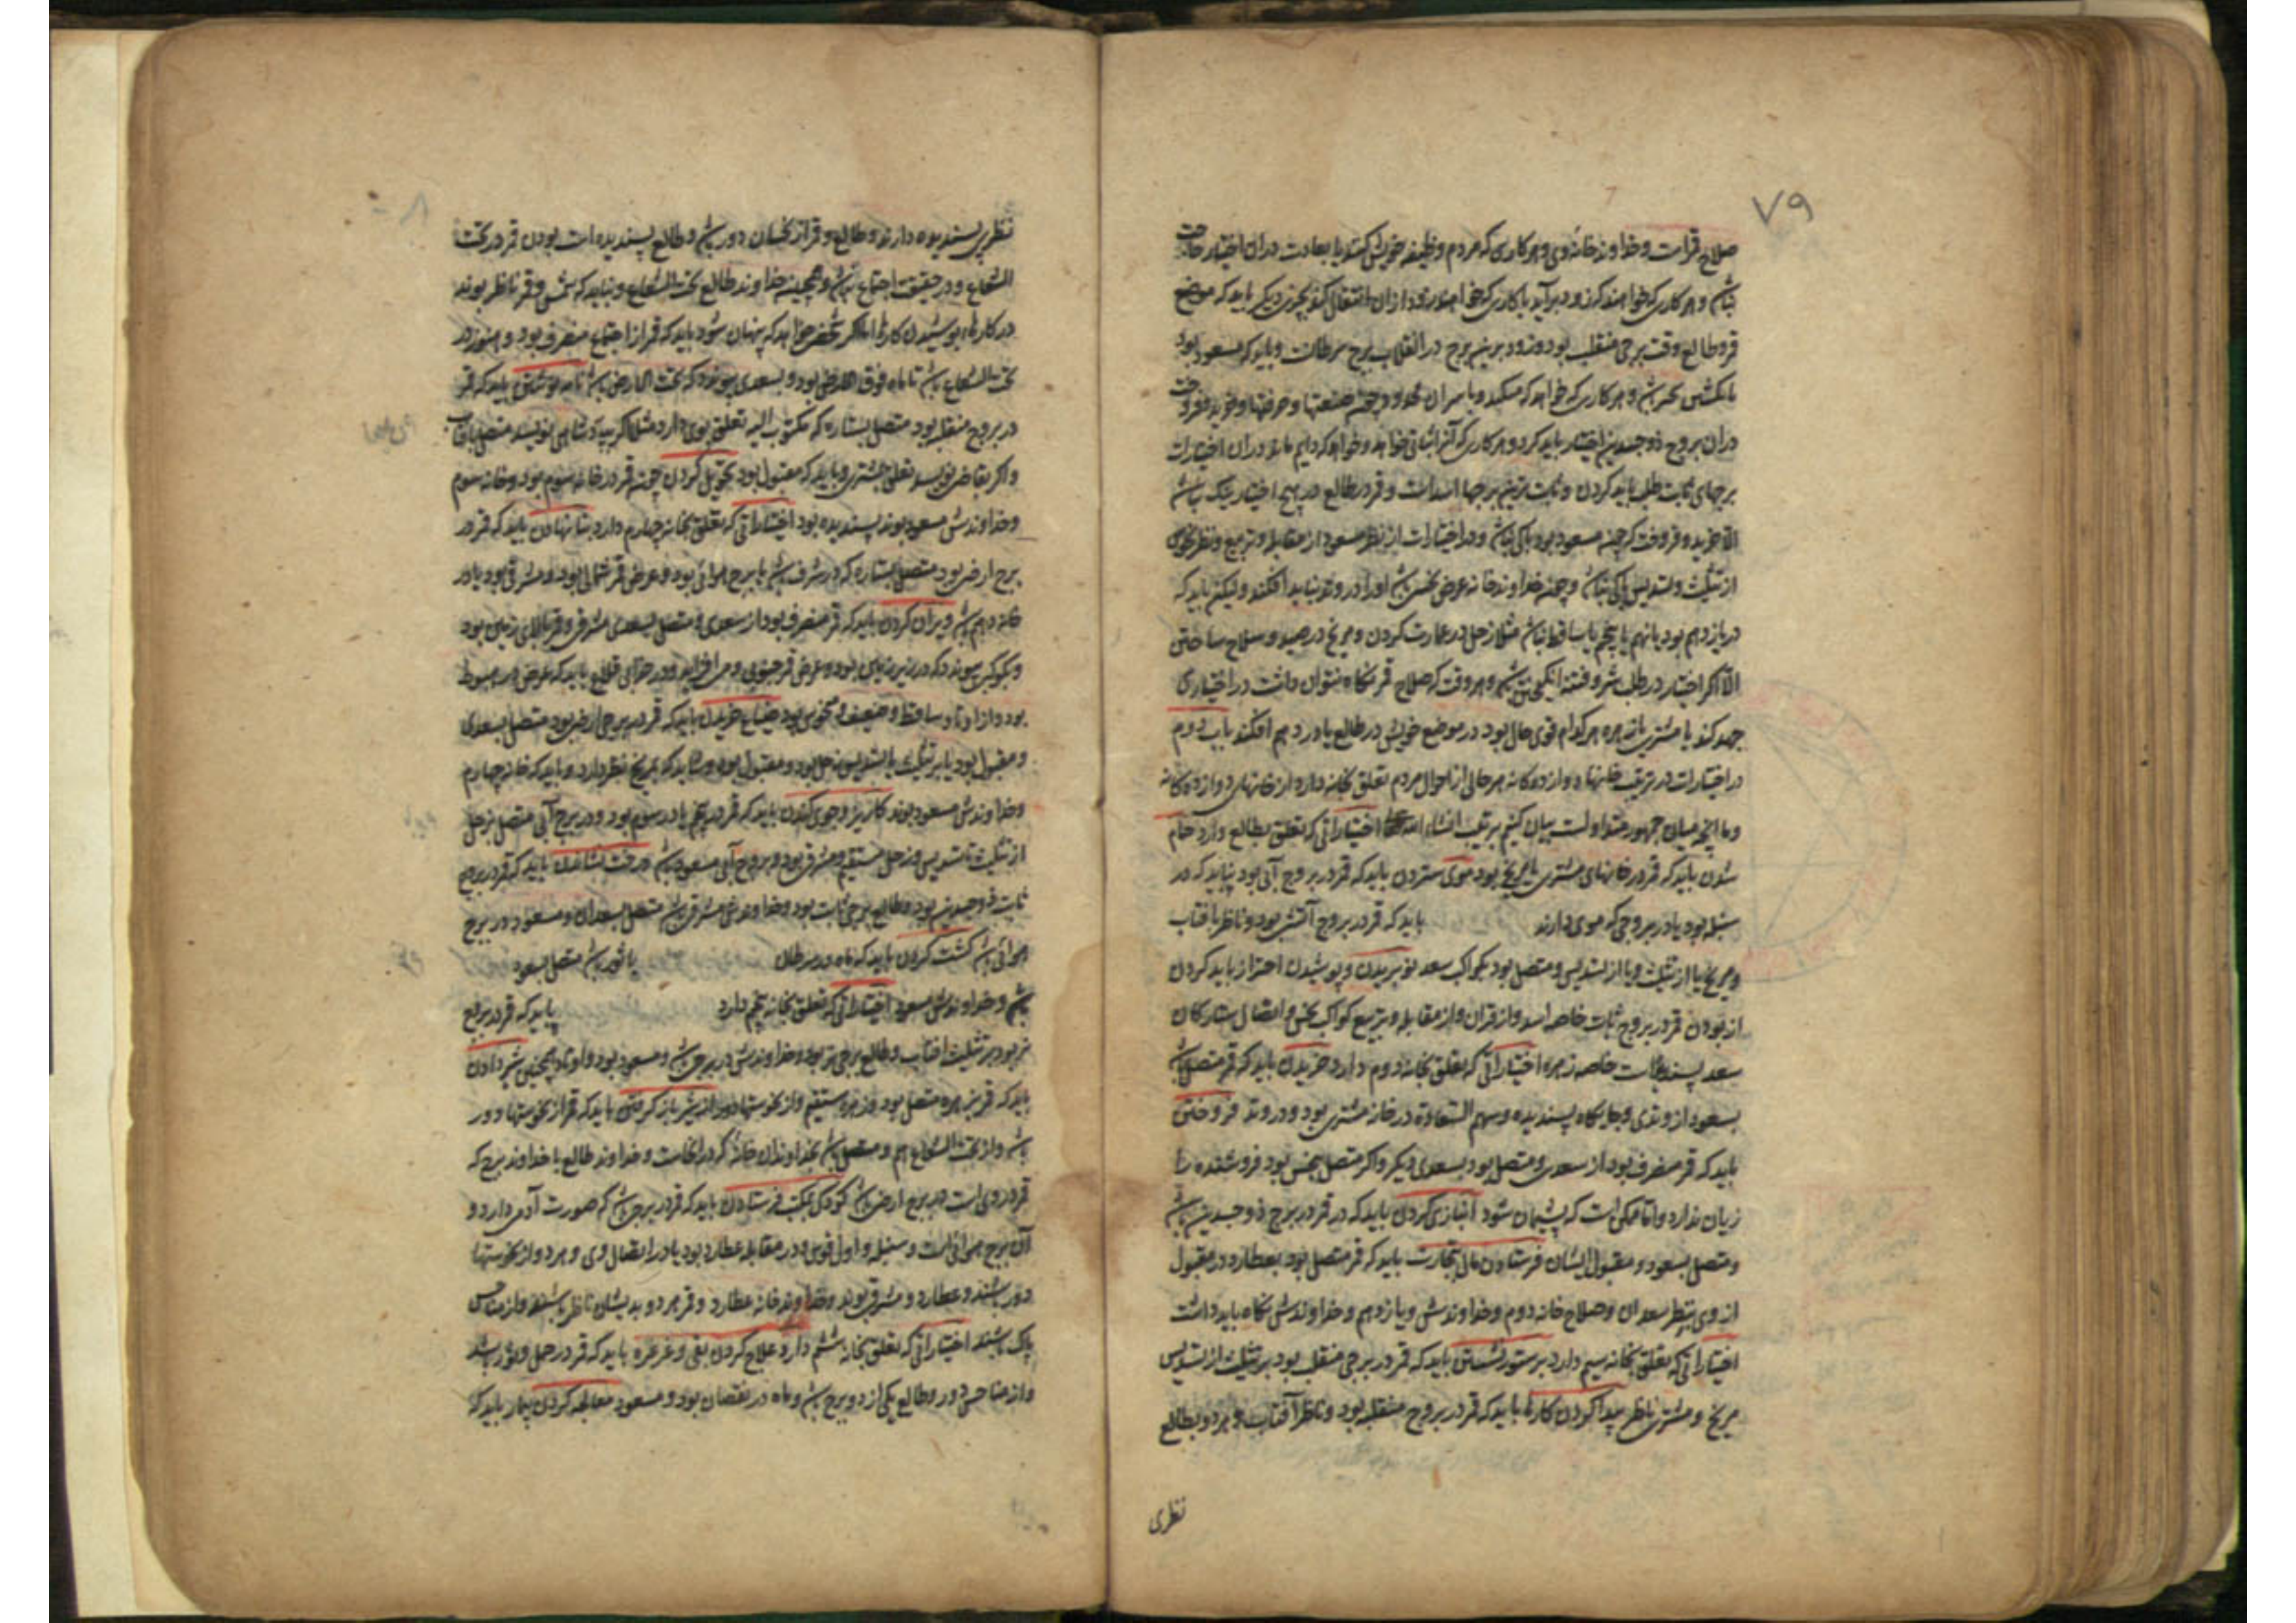 ۷۹
صلاح قمرست و خداوند خانه وی و هر کاری که مردم وظیفه خویش کنند یا بعادت دران اختیار حاجت
نباشد و هر کاری که خواهند که زود برآید یا کاری که خواهند زود ازان انتقال کند بچیزی دیکر باید که موضع
قمر و طالع وقت برجی منقلب بود و زودترین برج در انقلاب برج سرطانست و باید که مسعود بود
دران بروج ذوجسدین اختیار باید کرد و هر کاری که آنرا ثباتی خواهد
برجهای ثابت طلب باید کردن و ثابت ترین برجها اسد است و قمر در طالع در هیچ اختیار نیک نباشد
الا خرید و فروخت که چون مسعود بود باکی نباشد و در اختیارات از نظر مسعود از مقابله و تربیع و نظر نحوس
از تثلیث و تسدیس باکی نباشد و چون خداوند خانه غرض نحس باشد او را در وتد نباید افکند ولیکن باید که
در یازدهم بود یا نهم یا پنجم یا ساقط نباشد مثلا زحل در عمارت کردن و مریخ در صید و سلاح ساختن
الا اکر اختیار در طلب شر و فتنه انکیختن باشد و هر وقت که صلاح قمر نکاه نتوان داشت در اختیاری
جهد کند تا مشتری یا زهره هر کدام قوی حال بود در موضع خویش در طالع یا در دهم افکند باب دوم
در اختیارات در ترتیب خانهاء دوازده کانه هر حالی از احوال مردم تعلق بخانه دارد از خانهای دوازده کانه
و ما انچه میان جمهور متداولست بیان کنیم بر ترتیب انشاء الله اختیاراتی که تعلق بطالع دارد حمام
شدن باید که قمر در خانهای مشتری یا مریخ بود موی ستردن باید که قمر در بروج آبی بود نباید که در
سنبله بود یا در بروجی که موی دارند باید که قمر در بروج آتشی بود و ناظر بافتاب
و مریخ یا از تثلیث و یا از تسدیس و متصل بود بکواکب سعد نو بریدن و پوشیدن احتراز باید کردن
از بودن قمر در بروج ثابت خاصه اسد و از قران و از مقابله و تربیع کواکب نحس و اتصال ستارکان
سعد پسندیده است خاصه زهره اختیاراتی که تعلق بخانه دوم دارد خریدن باید که قمر متصل باشد
بسعود از وتدی و جایکاه پسندیده و سهم السعادة در خانه مشتری بود و در وتد فروختن
باید که قمر منصرف بود از سعدی و متصل بود بسعدی دیکر و اکر متصل بنحس بود فروشنده را
زیان ندارد و اما ممکن است که پشیمان شود انبازی کردن باید که قمر در برج ذوجسدین باشد
و متصل بسعود و مقبول ایشان فرستادن مال بتجارت باید که قمر متصل بود بعطارد و مقبول
از وی بنظر سعدان و صلاح خانه دوم و خداوندش و یازدهم و خداوندش نکاه باید داشت
اختیاراتی که تعلق بخانه سیم دارد بر ستور نشستن باید که قمر در برجی منقلب بود بر تثلیث از تسدیس
مریخ و مشتری ناظر پیدا کردن کارها باید که قمر در بروج منقلبه بود و ناظر آفتاب و هر دو بطالع
نظری
۸۰
نظر پسندیده دارند و طالع و قمر از نحسان دور باشد و طالع پسندیده است بودن قمر در تحت
الشعاع و در حقیقت اجتماع باشد و همچنین خداوند طالع تحت الشعاع و نباید که شمس و قمر ناظر بوند
در کارهاء پوشیدن کارها اما اکر شخصی خواهد که پنهان شود باید که قمر از اجتماع منصرف بود و هنوز در
تحت الشعاع باشد تا ماه فوق الارض بود و بسعدی پیوندد که تحت الارض باشد نامه نوشتن باید که قمر
در بروج منقلب بود متصل بستاره که مکتوب الیه تعلق بوی دارد مثلا اکر بپادشاهی نویسد متصل بافتاب
و اکر بقاضی نویسد تعلق بمشتری و باید که مقبول بود تحویل کردن چون قمر در خانه سوم بود و خانه سوم
و خداوندش مسعود بوند پسندیده بود اختیاراتی که تعلق بخانه چهارم دارد بنا نهادن باید که قمر در
برج ارضی بود متصل بستاره که در شرف باشد یا برج هوائی بود و عرض قمر شمالی بود و مشرقی بود یا در
خانه دهم باشد ویران کردن باید که قمر منصرف بود از سعدی و متصل بسعدی مشرقی و قمر بالای زمین بود
و بکوکبی پیوندد که در زیر زمین بود و عرض قمر جنوبی و می افزاید و در خرابی قلاع باید که عرض در هبوط
بود و از اوتاد ساقط و ضعیف و منحوس بود ضیاع خریدن باید که قمر در برجی ارضی بود متصل بسعدی
و مقبول بود یا بر تثلیث یا تسدیس زحل بود و مقبول بود و نباید که مریخ نظر دارد و باید که خانه چهارم
و خداوندش مسعود بوند کاریز و جوی کندن باید که قمر در پنجم یا در سوم بود و در برج آبی متصل بزحل
از تثلیث تسدیس و زحل مستقیم و مشرقی بود و بروج آبی مسعود باشد درخت نشاندن باید که قمر در برج
ثابت ذوجسدین بود و طالع برجی ثابت بود و خداوندش مشرقی باشد متصل بسعدان و مسعود در برج
هوائی باشد کشت کردن باید که ماه در سرطان یا ثور باشد متصل بسعود
باشد و خداوندش مسعود اختیاراتی که تعلق بخانه پنجم دارد باید که قمر در برج
نر بود بر تثلیث افتاب و طالع برج نر بود و خداوندش در برج نر باشد و مسعود بود و اوتاد همچنین شیر دادن
باید که قمر بزهره متصل بود و زهره مستقیم و از نحوستها دور از شیر باز کرفتن باید که قمر از نحوستها دور
باشد و از تحت الشعاع هم و متصل باشد بخداوند آن خانه که در انجاست و خداوند طالع یا خداوند برج که
قمر در وی است در برج ارضی باشد کودک بمکتب فرستادن باید که قمر در برجی باشد که صورت آدمی دارد و
آن برج هوائی است و سنبله و اول قوس و در مقابله عطارد بود یا در اتصال وی و هر دو از نحوستها
دور باشند و عطارد و مشرقی بوند و خداوند خانه عطارد و قمر هر دو بدیشان ناظر باشند و از مناحس
پاک باشند اختیاراتی که تعلق بخانه ششم دارد علاج کردن بقی و غرغره باید که قمر در حمل و ثور باشد
و از مناحس دور و طالع یکی از دو برج باشد و ماه در نقصان بود و مسعود معالجه کردن بیمار باید که